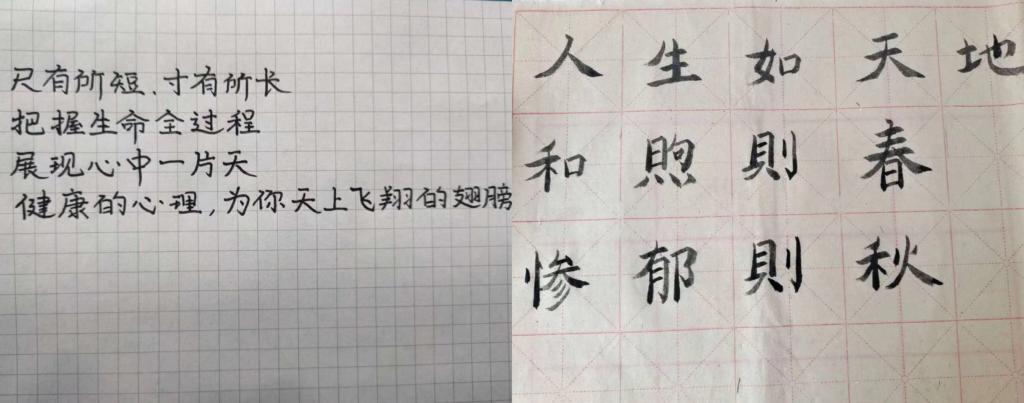 尺有所短、寸有所长
把握生命全过程
展现心中一片天
健康的心理,为你天上飞翔的翅膀
人生如天地
和煦則春
惨郁則秋